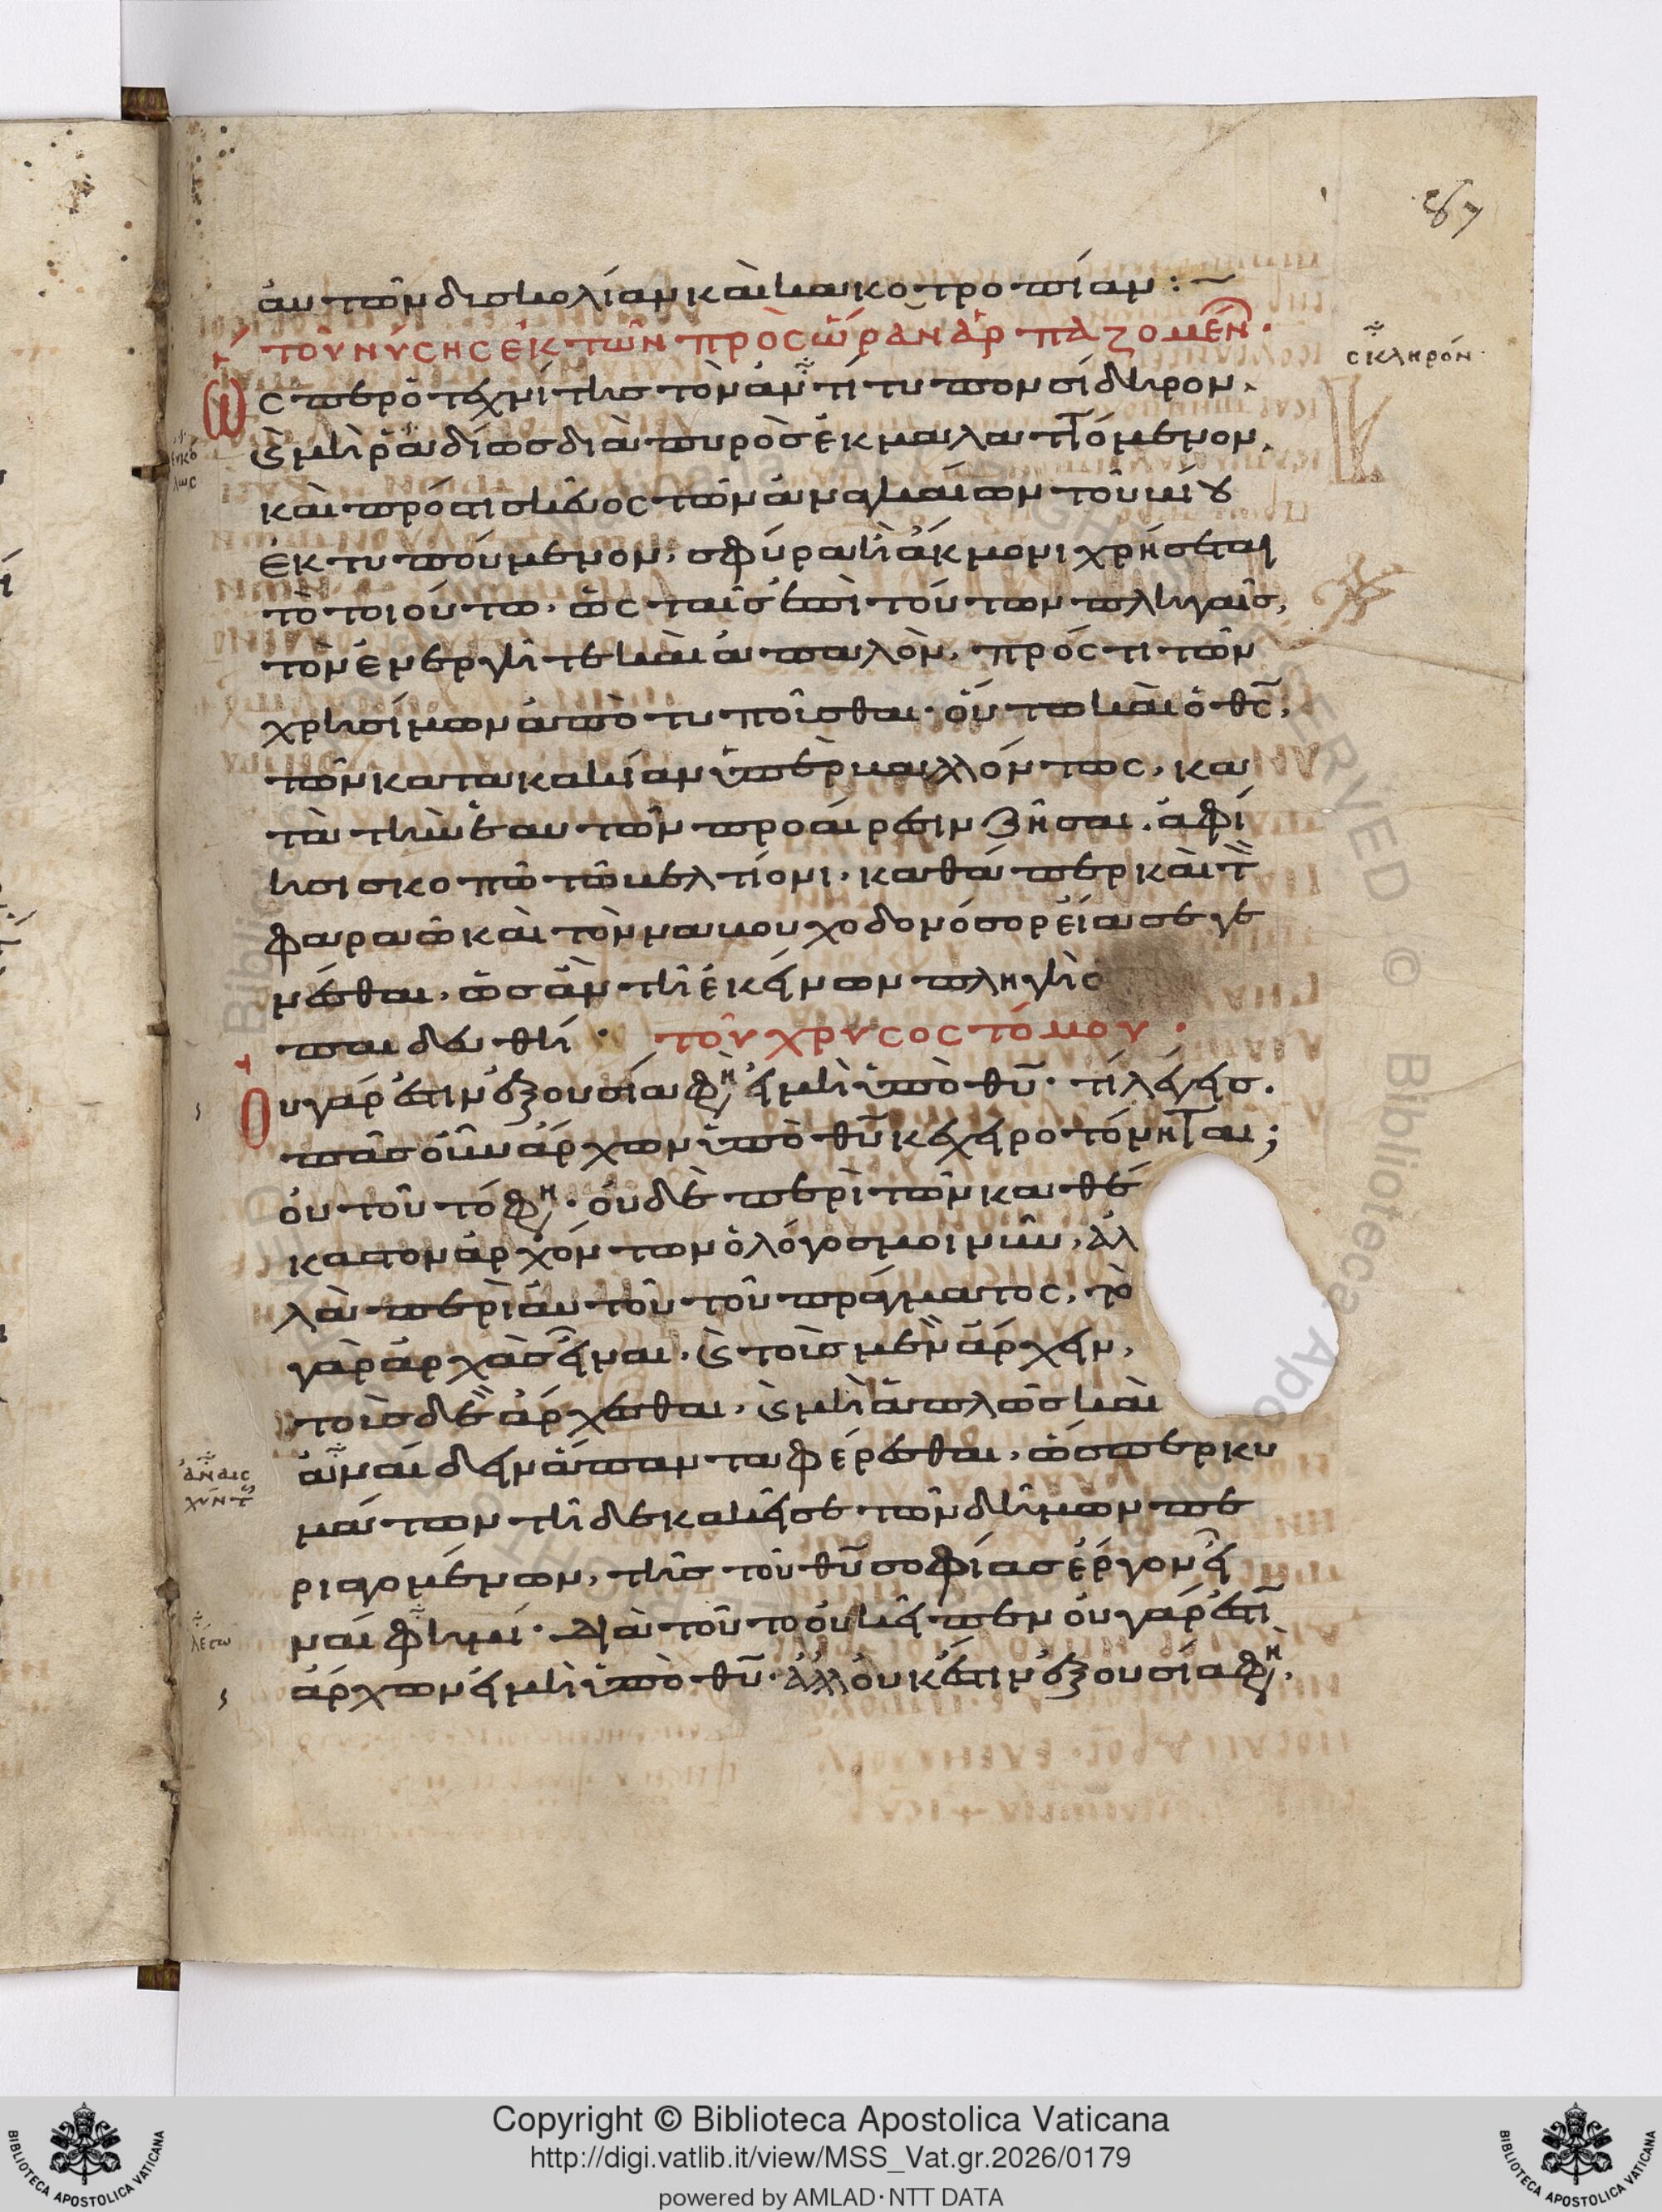 87
αὐτῶν δυσκολίαν καὶ κακοτροπίαν :~
τοῦ νύσης ἐκ τῶν πρὸς ὥραν ἁρπαζομέν.
σκληρόν.
Ὥσπερ ὁ τεχνίτης τὸν ἀντίτυπον σίδηρον,
ϗ μὴ ῥαδίως διὰ πυρὸς ἐκμαλαττόμενον,
εὐκό
λως
καὶ πρός τι σκεῦος τῶν ἀναγκαίων τοῦ βίου
ἐκτυπούμενον, σφύρα ἢ ἄκμονι χρήσεται
τὸ τοιούτω. ὡς ταῖς ἐπὶ τούτων πληγαῖς,
τὸν ἐνεργῆ τε καὶ ἁπαλὸν, πρός τι τῶν
χρησίμων ἀποτυποῖσθαι. οὕτω καὶ ὁ θς,
τῶν κατὰ κακίαν ὑπερβαλλόντως, κα
τὰ τὴν ἑαυτῶν προαίρεσιν ζῆσαι. ἀφί
ησι σκοπῶ τῶ βελτίονι. καθάπερ καὶ τ
φαραὼ καὶ τὸν ναβουχοδονόσορ εἴασε γε
νέσθαι, ὡς ἂν τῆ ἐκείνων πληγῆ ὁ
παιδευθῆ. τοῦ χρυσοστόμου.
Οὐ γάρ ἐστιν ἐξουσία φη, εἰ μὴ ὑπὸ θυ. τί λέγεις.
πᾶς οὖν ἄρχων ὑπὸ θυ κεχειροτόνηται;
οὐ τοῦτό φη. οὐδὲ περὶ τῶν καθέ
καστον ἀρχόντων ὁ λόγος μοι νῦν, ἀλ
λὰ περὶ αὐτοῦ τοῦ πράγματος, τὸ
γὰρ ἀρχὰς εἶναι, ϗ τοὺς μὲν ἄρχειν,
τοὺς δὲ ἄρχεσθαι, ϗ μὴ ἁπλῶς καὶ
ἀναίδειν ἅπαντα φέρεσθαι, ὥσπερ κυ
ἀναισ
χυντ
μάτων τῆδε κακεῖσε τῶν δήμων πε
ριαγομένων, τῆς τοῦ θυ σοφίας ἔργον εἶ
ναί φημι. διὰ τοῦτο οὐκ εἶπεν οὐ γάρ ἐστι
λέγω
ἄρχων εἰ μὴ ὑπὸ θυ. ἀλλ' οὐκ ἔστιν ἐξουσία φη,
Copyright © Biblioteca Apostolica Vaticana
http://digi.vatlib.it/view/MSS_Vat.gr.2026/0179
powered by AMLAD·NTT DATA
BIBLIOTECA APOSTOLICA VATICANA
BIBLIOTECA APOSTOLICA VATICANA